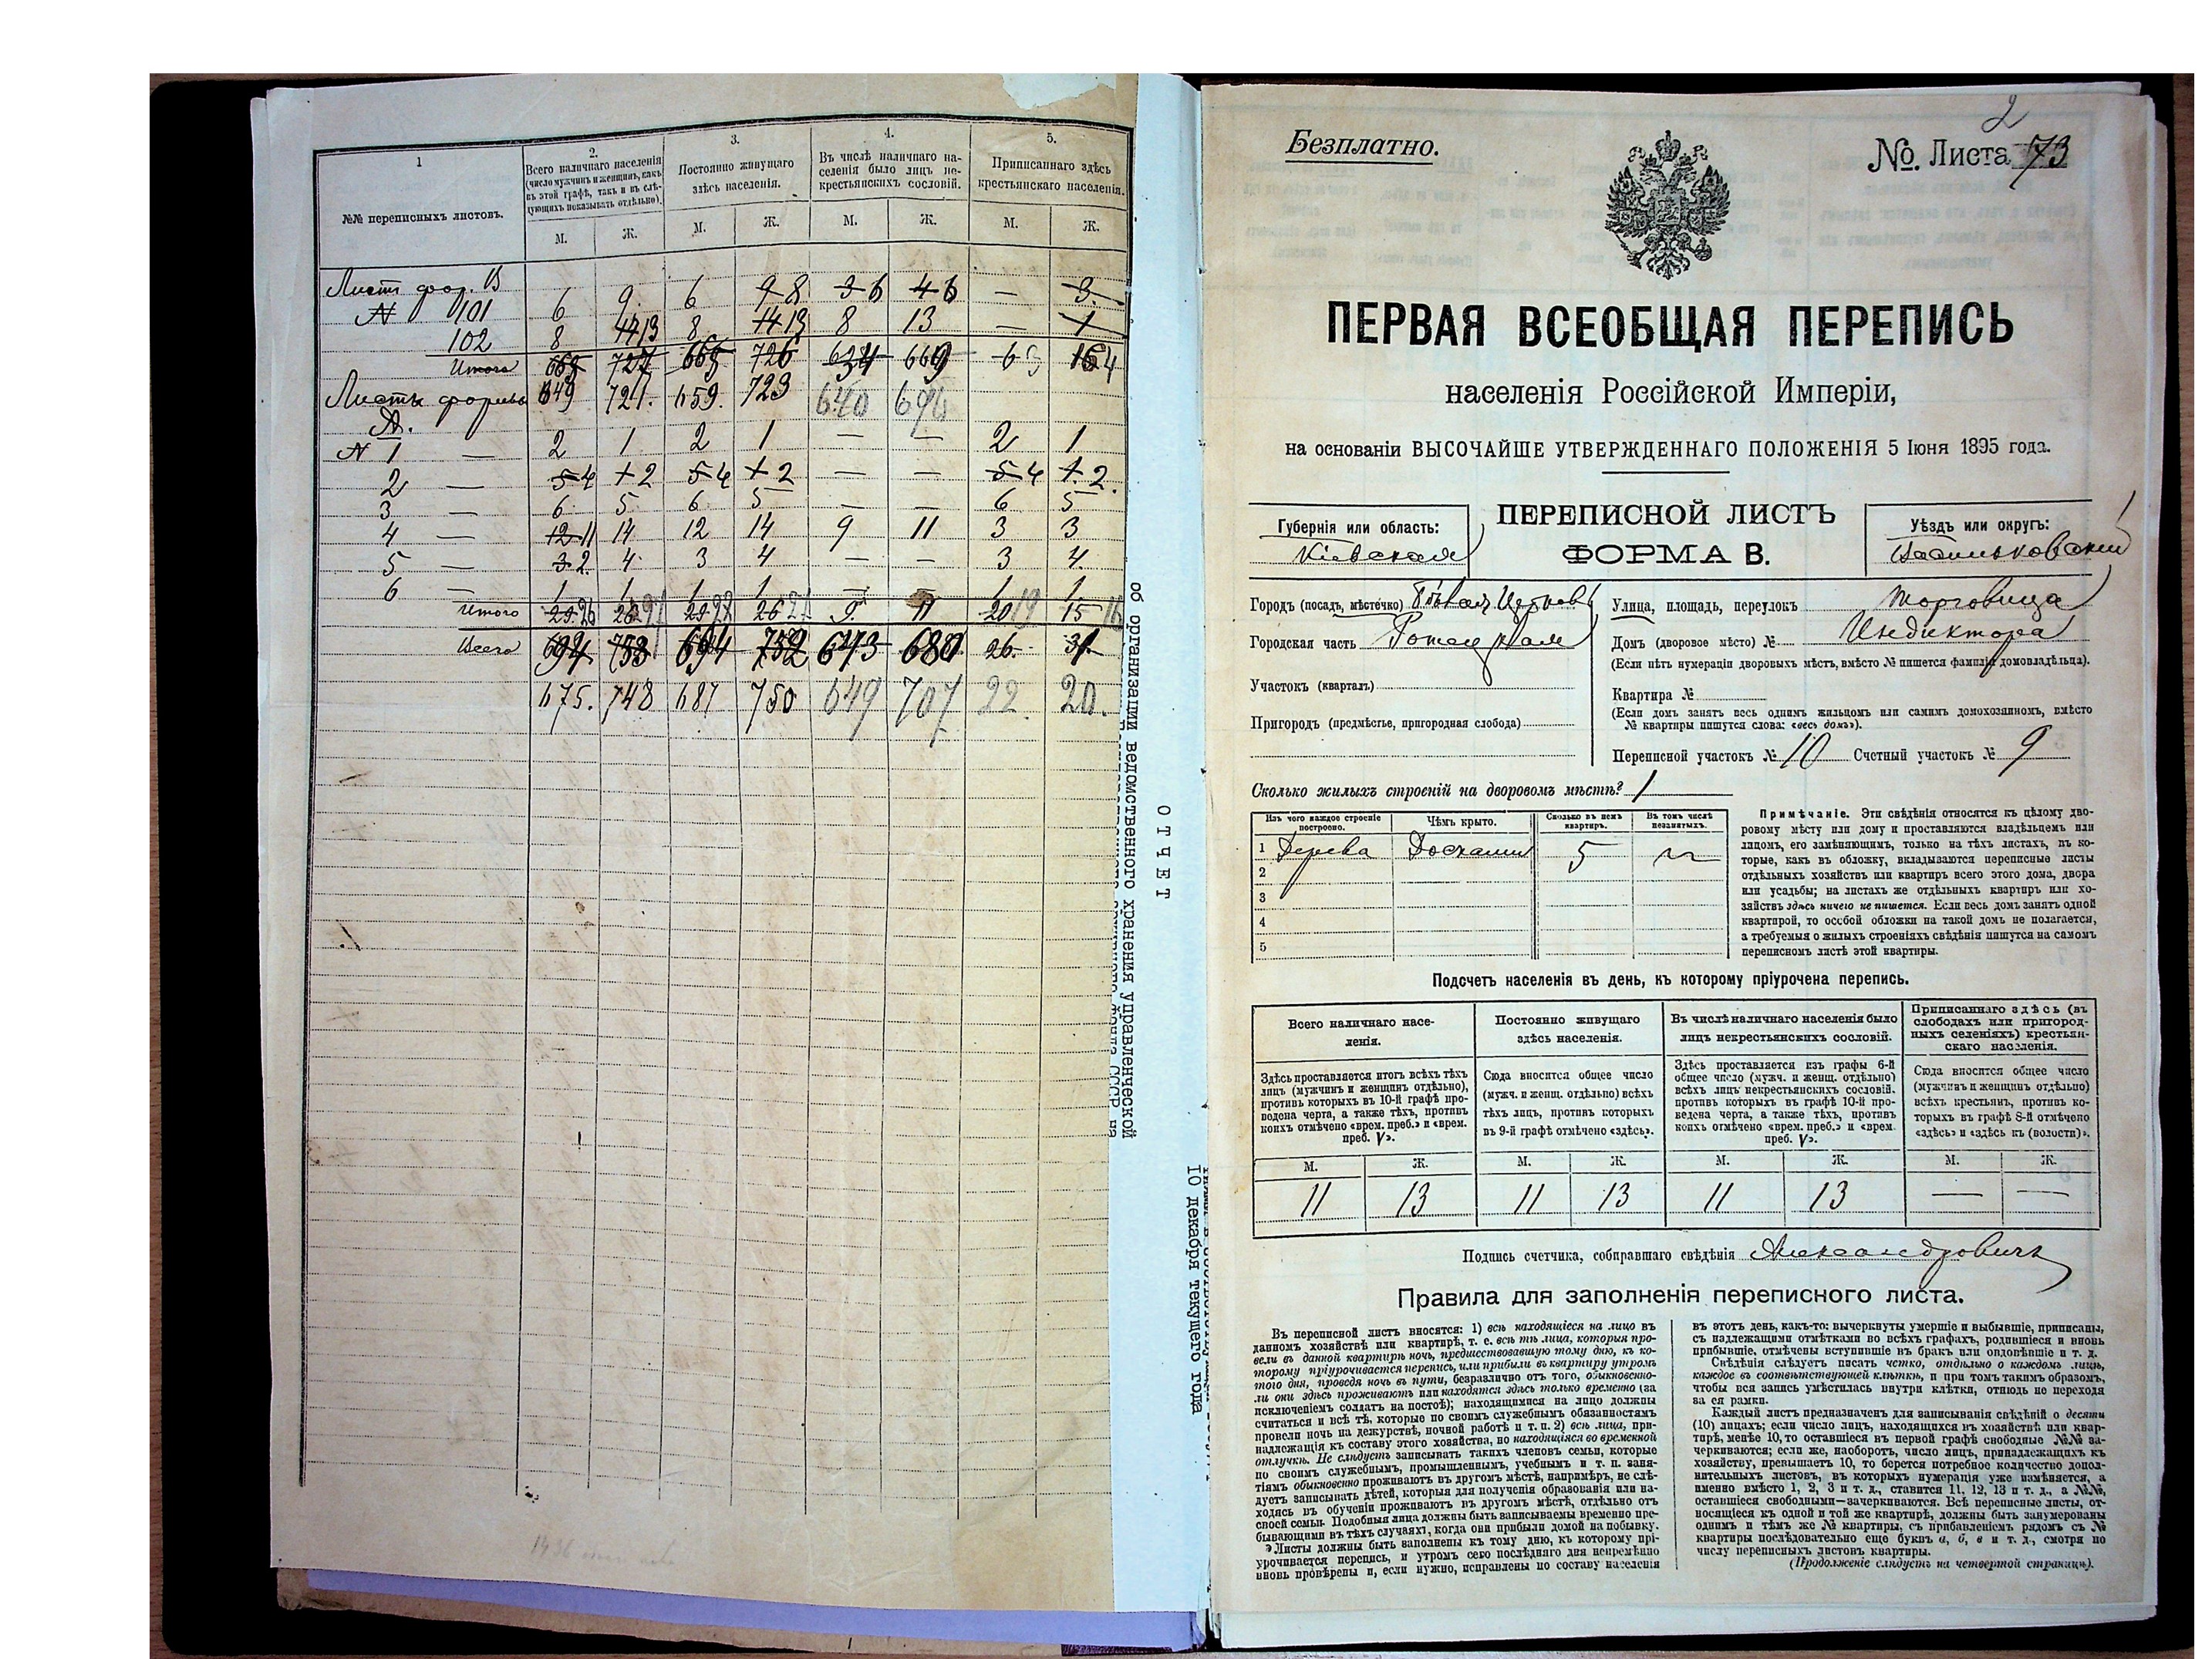 1
2.
3.
4.
5.
№№ переписныхъ листовъ.
Всего наличнаго населенія
(число мужчинъ и женщинъ, какъ
въ этой графѣ, такъ и въ слѣ-
дующихъ показывать отдѣльно).
Постоянно живущаго
здѣсь населенія.
Въ числѣ наличнаго на-
селенія было лицъ не-
крестьянскихъ сословій.
Приписаннаго здѣсь
крестьянскаго населенія.
М. Ж. М. Ж. М. Ж. М. Ж.
Листъ фор. В
№ 101 6 9 6 9 8 3 6 4 6 — 3
102 8 14 13 8 14 13 8 13 — 1
Итого 665 727 665 726 634 669 6 3 4
Листы формы 649 721. 659. 723 640
А.
№ 1 — 2 1 2 1 — — 2 1
2 — 5 4 + 2 5 4 + 2 — — 5 4 + 2.
3 — 6 5 6 5 — — 6 5
4 — 12 11 14 12 14 9 11 3 3
5 — 3 2. 4 3 4 — — 3 4
6 — 1 1 1 1 — — 1 1
Итого 29 26 26 27 29 28 26 27 9 11 20 19 15 16
Всего 694 753 694 752 643 680 26. 31.
675. 748 687 750 649 707 22. 20.
ОТЧЕТ
об организации ведомственного хранения управленческой
10 декабря текущего года
2
Безплатно.
№. Листа 73
ПЕРВАЯ ВСЕОБЩАЯ ПЕРЕПИСЬ
населенія Россійской Имперіи,
на основаніи ВЫСОЧАЙШЕ УТВЕРЖДЕННАГО ПОЛОЖЕНІЯ 5 Іюня 1895 года.
Губернія или область:
Кіевская
ПЕРЕПИСНОЙ ЛИСТЪ
ФОРМА В.
Уѣздъ или округъ:
Васильковскій
Городъ (посадъ, мѣстечко) Бѣлая Церковь
Городская часть
Участокъ (кварталъ)
Пригородъ (предмѣстье, пригородная слобода)
Улица, площадь, переулокъ Торговица
Домъ (дворовое мѣсто) № Индиктора
(Если нѣтъ нумераціи дворовыхъ мѣстъ, вмѣсто № пишется фамилія домовладѣльца).
Квартира №
(Если домъ занятъ весь однимъ жильцомъ или самимъ домохозяиномъ, вмѣсто
№ квартиры пишутся слова: «весь домъ»).
Переписной участокъ № 10 Счетный участокъ № 9
Сколько жилыхъ строеній на дворовомъ мѣстѣ? 1
Изъ чего каждое строеніе
построено.
Чѣмъ крыто.
Сколько въ немъ
квартиръ.
Въ томъ числѣ
незанятыхъ.
1 Дерева Досками 5
2
3
4
5
Примѣчаніе. Эти свѣдѣнія относятся къ цѣлому дво-
ровому мѣсту или дому и проставляются владѣльцемъ или
лицомъ, его замѣняющимъ, только на тѣхъ листахъ, въ ко-
торые, какъ въ обложку, вкладываются переписные листы
отдѣльныхъ хозяйствъ или квартиръ всего этого дома, двора
или усадьбы; на листахъ же отдѣльныхъ квартиръ или хо-
зяйствъ здѣсь ничего не пишется. Если весь домъ занятъ одной
квартирой, то особой обложки на такой домъ не полагается,
а требуемыя о жилыхъ строеніяхъ свѣдѣнія пишутся на самомъ
переписномъ листѣ этой квартиры.
Подсчетъ населенія въ день, къ которому пріурочена перепись.
Всего наличнаго насе-
ленія.
Здѣсь проставляется итогъ всѣхъ тѣхъ
лицъ (мужчинъ и женщинъ отдѣльно),
противъ которыхъ въ 10-й графѣ про-
ведена черта, а также тѣхъ, противъ
коихъ отмѣчено «врем. преб.» и «врем.
преб. V».
Постоянно живущаго
здѣсь населенія.
Сюда вносится общее число
(мужч. и женщ. отдѣльно) всѣхъ
тѣхъ лицъ, противъ которыхъ
въ 9-й графѣ отмѣчено «здѣсь».
Въ числѣ наличнаго населенія было
лицъ некрестьянскихъ сословій.
Здѣсь проставляется изъ графы 6-й
общее число (мужч. и женщ. отдѣльно)
всѣхъ лицъ некрестьянскихъ сословій.
противъ которыхъ въ графѣ 10-й про-
ведена черта, а также тѣхъ, противъ
коихъ отмѣчено «врем. преб.» и «врем.
преб. V».
Приписаннаго здѣсь (въ
слободахъ или пригород-
ныхъ селеніяхъ) крестьян-
скаго населенія.
Сюда вносится общее число
(мужчинъ и женщинъ отдѣльно)
всѣхъ крестьянъ, противъ ко-
торыхъ въ графѣ 8-й отмѣчено
«здѣсь» и «здѣсь къ (волости)».
М. Ж. М. Ж. М. Ж. М. Ж.
11 13 11 13 11 13 — —
Подпись счетчика, собиравшаго свѣдѣнія Александровичъ
Правила для заполненія переписного листа.
Въ переписной листъ вносятся: 1) всѣ находящіеся на лицо въ
данномъ хозяйствѣ или квартирѣ, т. е. всѣ тѣ лица, которыя про-
вели въ данной квартирѣ ночь, предшествовавшую тому дню, къ ко-
торому пріурочивается перепись, или прибыли въ квартиру утромъ
того дня, проведя ночь въ пути, безразлично отъ того, обыкновенно-
ли они здѣсь проживаютъ или находятся здѣсь только временно (за
исключеніемъ солдатъ на постоѣ); находящимися на лицо должны
считаться и всѣ тѣ, которые по своимъ служебнымъ обязанностямъ
провели ночь на дежурствѣ, ночной работѣ и т. п. 2) всѣ лица, при-
надлежащія къ составу этого хозяйства, но находящіяся во временной
отлучкѣ. Не слѣдуетъ записывать такихъ членовъ семьи, которые
по своимъ служебнымъ, промышленнымъ, учебнымъ и т. п. заня-
тіямъ обыкновенно проживаютъ въ другомъ мѣстѣ, напримѣръ, не слѣ-
дуетъ записывать дѣтей, которыя для полученія образованія или на-
ходясь въ обученіи проживаютъ въ другомъ мѣстѣ, отдѣльно отъ
своей семьи. Подобныя лица должны быть записываемы временно пре-
бывающими въ тѣхъ случаяхъ, когда они прибыли домой на побывку.
Листы должны быть заполнены къ тому дню, къ которому прі-
урочивается перепись, и утромъ сего послѣдняго дня непремѣнно
вновь провѣрены и, если нужно, исправлены по составу населенія
въ этотъ день, какъ-то: вычеркнуты умершіе и выбывшіе, приписаны,
съ надлежащими отмѣтками во всѣхъ графахъ, родившіеся и вновь
прибывшіе, отмѣчены вступившіе въ бракъ или овдовѣвшіе и т. д.
Свѣдѣнія слѣдуетъ писать четко, отдѣльно о каждомъ лицѣ,
каждое въ соотвѣтствующей клѣткѣ, и при томъ такимъ образомъ,
чтобы вся запись умѣстилась внутри клѣтки, отнюдь не переходя
за ея рамки.
Каждый листъ предназначенъ для записыванія свѣдѣній о десяти
(10) лицахъ; если число лицъ, находящихся въ хозяйствѣ или квар-
тирѣ, менѣе 10, то оставшіеся въ первой графѣ свободные №№ за-
черкиваются; если же, наоборотъ, число лицъ, принадлежащихъ къ
хозяйству, превышаетъ 10, то берется потребное количество допол-
нительныхъ листовъ, въ которыхъ нумерація уже измѣняется, а
именно вмѣсто 1, 2, 3 и т. д., ставится 11, 12, 13 и т. д., а №№,
оставшіеся свободными—зачеркиваются. Всѣ переписные листы, от-
носящіеся къ одной и той же квартирѣ, должны быть занумерованы
однимъ и тѣмъ же № квартиры, съ прибавленіемъ рядомъ съ №
квартиры послѣдовательно еще буквъ а, б, в и т. д., смотря по
числу переписныхъ листовъ квартиры.
(Продолженіе слѣдуетъ на четвертой страницѣ).